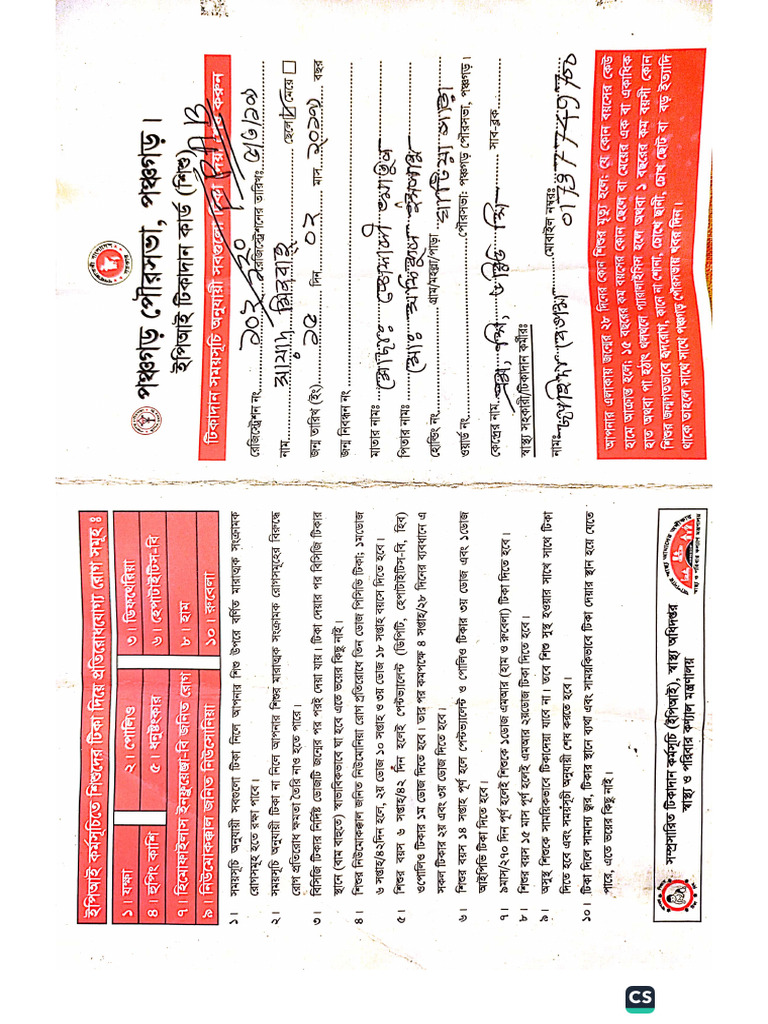 পঞ্চগড় পৌরসভা, পঞ্চগড়।
ইপিআই টিকাদান কার্ড (শিশু)
টিকাদান সময়সূচি অনুযায়ী সবগুলো টিকা দিয়া শেষ করুন
রেজিস্ট্রেশন নং রেজিস্ট্রেশনের তারিখঃ
নাম ছেলে মেয়ে
জন্ম তারিখ (ইং) ১০ দিন ০২ মাস ২০১৭ বছর
জন্ম নিবন্ধন নং
মাতার নামঃ
পিতার নামঃ
হোল্ডিং নং গ্রাম/মহল্লা/পাড়া
ওয়ার্ড নং পৌরসভা: পঞ্চগড় পৌরসভা, পঞ্চগড়।
কেন্দ্রের নাম সাব-ব্লক
স্বাস্থ্য সহকারী/টিকাদান কর্মীরঃ
নামঃ মোবাইল নম্বরঃ
আপনার এলাকায় জন্মের ২৮ দিনের কোন শিশুর মৃত্যু হলে; যে কোন বয়সের কেউ
হামে আক্রান্ত হলে; ১৫ বছরের কম বয়সের কোন ছেলে বা মেয়ের এক বা একাধিক
হাত অথবা পা হঠাৎ থলথলে প্যারালাইসিস হলে অথবা ১ বছরের কম বয়সী কোন
শিশুর জন্মগতভাবে হৃদরোগ, কানে না শোনা, চোখে ছানী, চোখ ছোট বা বড় ইত্যাদি
থাকে তাহলে সাথে সাথে পঞ্চগড় পৌরসভায় খবর দিন।
ইপিআই কর্মসূচিতে শিশুদের টিকা দিয়ে প্রতিরোধযোগ্য রোগ সমূহ ঃ
১। যক্ষা ২। পোলিও ৩। ডিফথেরিয়া
৪। হুপিং কাশি ৫। ধনুষ্টংকার ৬। হেপাটাইটিস-বি
৭। হিমোফাইলাস ইনফ্লুয়েঞ্জা-বি জনিত রোগ ৮। হাম
৯। নিউমোকক্কাল জনিত নিউমোনিয়া ১০। রুবেলা
১। সময়সূচি অনুযায়ী সবগুলো টিকা নিলে আপনার শিশু উপরে বর্ণিত মারাত্মক সংক্রামক
রোগসমূহ হতে রক্ষা পাবে।
২। সময়সূচি অনুযায়ী টিকা না নিলে আপনার শিশুর মারাত্মক সংক্রামক রোগসমূহের বিরুদ্ধে
রোগ প্রতিরোধ ক্ষমতা তৈরি নাও হতে পারে।
৩। বিসিজি টিকার নির্দিষ্ট ডোজটি জন্মের পর পরই দেয়া যায়। টিকা দেয়ার পর বিসিজি টিকার
স্থানে (বাম বাহুতে) স্বাভাবিকভাবে ঘা হবে এতে ভয়ের কিছু নাই।
৪। শিশুর নিউমোকক্কাল জনিত নিউমোনিয়া রোগ প্রতিরোধে তিন ডোজ পিসিভি টিকা; ১মডোজ
৬ সপ্তাহ/৪২দিন হলে, ২য় ডোজ ১০ সপ্তাহ ও ৩য় ডোজ ১৮ সপ্তাহ বয়সে দিতে হবে।
৫। শিশুর বয়স ৬ সপ্তাহ/৪২ দিন হলেই পেন্টাভ্যালেন্ট (ডিপিটি, হেপাটাইটিস-বি, হিব)
ওপোলিও টিকার ১ম ডোজ দিতে হবে। তার পর কমপক্ষে ৪ সপ্তাহ/২৮ দিনের ব্যবধানে এ
সকল টিকার ২য় এবং ৩য় ডোজ দিতে হবে।
৬। শিশুর বয়স ১৪ সপ্তাহ পূর্ণ হলে পেন্টাভ্যালেন্ট ও পোলিও টিকার ৩য় ডোজ এবং ১ডোজ
আইপিভি টিকা দিতে হবে।
৭। ৯মাস/২৭০ দিন পূর্ণ হলেই শিশুকে ১ডোজ এমআর (হাম ও রুবেলা) টিকা দিতে হবে।
৮। শিশুর বয়স ১৫ মাস পূর্ণ হলেই এমআর ২য়ডোজ টিকা দিতে হবে।
৯। অসুস্থ শিশুকে সাময়িকভাবে টিকাদেয়া যাবে না। তবে শিশু সুস্থ হওয়ার সাথে সাথে টিকা
দিতে হবে এবং সময়সূচী অনুযায়ী শেষ করতে হবে।
১০। টিকা দিলে সামান্য জ্বর, টিকার স্থানে ব্যথা এবং সাময়িকভাবে টিকা দেয়ার স্থান হয়ে যেতে
পারে, এতে ভয়ের কিছু নাই।
সম্প্রসারিত টিকাদান কর্মসূচি (ইপিআই), স্বাস্থ্য অধিদপ্তর
স্বাস্থ্য ও পরিবার কল্যাণ মন্ত্রণালয়
CS